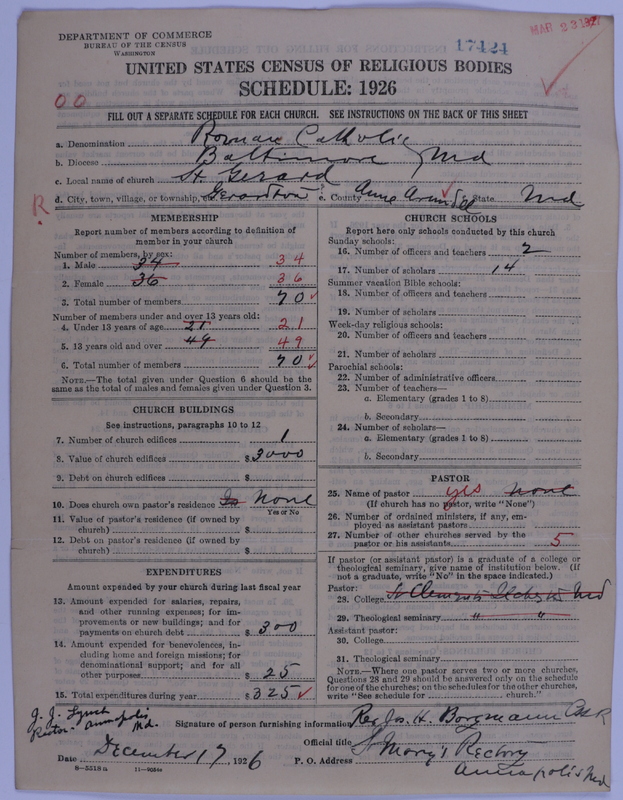 DEPARTMENT OF COMMERCE
BUREAU OF THE CENSUS
WASHINGTON
17424
MAR 23 1927
UNITED STATES CENSUS OF RELIGIOUS BODIES
SCHEDULE: 1926
00
FILL OUT A SEPARATE SCHEDULE FOR EACH CHURCH. SEE INSTRUCTIONS ON THE BACK OF THIS SHEET
a. Denomination Roman Catholic
b. Diocese Baltimore Md
c. Local name of church St. Gerard
R
d. City, town, village, or township, etc. e. County Anne Arundel State Md
MEMBERSHIP
Report number of members according to definition of
member in your church
Number of members, by sex:
1. Male 34 34
2. Female 36 36
3. Total number of members 70
Number of members under and over 13 years old:
4. Under 13 years of age 21 21
5. 13 years old and over 49 49
6. Total number of members 70
NOTE.—The total given under Question 6 should be the
same as the total of males and females given under Question 3.
CHURCH BUILDINGS
See instructions, paragraphs 10 to 12
7. Number of church edifices 1
8. Value of church edifices $3000
9. Debt on church edifices $
10. Does church own pastor's residence None
Yes or No
11. Value of pastor's residence (if owned by
church) $
12. Debt on pastor's residence (if owned by
church) $
EXPENDITURES
Amount expended by your church during last fiscal year
13. Amount expended for salaries, repairs,
and other running expenses; for im-
provements or new buildings; and for
payments on church debt $ 300
14. Amount expended for benevolences, in-
cluding home and foreign missions; for
denominational support; and for all
other purposes $ 25
15. Total expenditures during year $ 325
CHURCH SCHOOLS
Report here only schools conducted by this church
Sunday schools:
16. Number of officers and teachers 2
17. Number of scholars 14
Summer vacation Bible schools:
18. Number of officers and teachers
19. Number of scholars
Week-day religious schools:
20. Number of officers and teachers
21. Number of scholars
Parochial schools:
22. Number of administrative officers
23. Number of teachers—
a. Elementary (grades 1 to 8)
b. Secondary
24. Number of scholars—
a. Elementary (grades 1 to 8)
b. Secondary
PASTOR
25. Name of pastor yes None
(If church has no pastor, write "None")
26. Number of ordained ministers, if any, em-
ployed as assistant pastors
27. Number of other churches served by the
pastor or his assistants 5
If pastor (or assistant pastor) is a graduate of a college or
theological seminary, give name of institution below. (If
not a graduate, write "No" in the space indicated.)
Pastor:
28. College St Clements Ilchester Md
29. Theological seminary " "
Assistant pastor:
30. College
31. Theological seminary
NOTE.—Where one pastor serves two or more churches,
Questions 28 and 29 should be answered only on the schedule
for one of the churches; on the schedules for the other churches,
write "See schedule for church."
J. J. Lynch
Pastor- Annapolis
Md.
Signature of person furnishing information Rev Jos. H. Borgmann CSSR
Official title St Mary's Rectory
Date December 17, 1926 P. O. Address Annapolis Md
8—5518a 11—9084